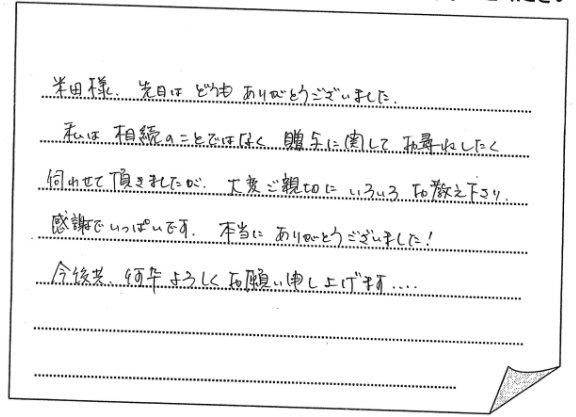 米田様、先日は どうも ありがとうございました。
私は 相続のことではなく 贈与に関して お尋ねしたく
伺わせて頂きましたが、大変ご親切に いろいろ お教え下さり、
感謝でいっぱいです。 本当に ありがとうございました!
今後共、何卒 よろしく お願い申し上げます....